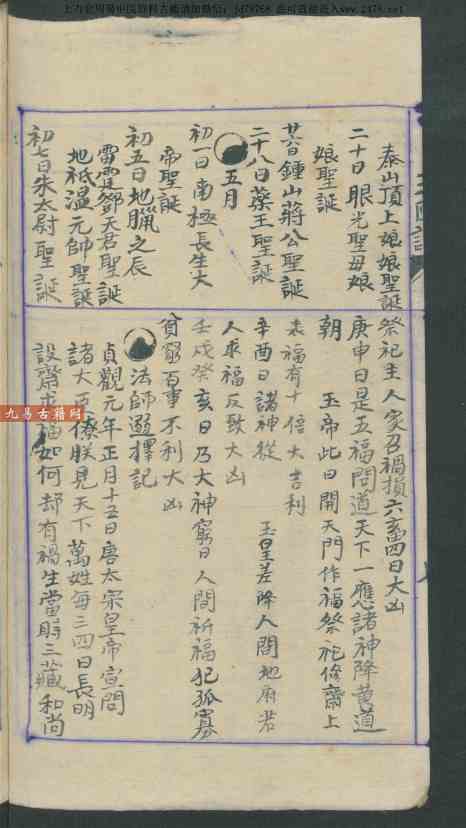 泰山頂上娘娘聖誕
二十日眼光聖母娘
娘聖誕
廿酉鍾山蔣公聖誕
二十八日藥王聖誕
五月
初一日南極長生大
帝聖誕
初五日地臘之辰
雷霆鄧天君聖誕
地祇溫元帥聖誕
初七日朱太尉聖誕
祭祀主人家召禍損六畜四日大凶
庚申日是五福問道天下一應諸神降黃道
朝 玉帝此日開天門作福祭祀修齋上
表福有十倍大吉利
辛酉日諸神從 玉皇差降人間地府若
人求福反致大凶
壬戌癸亥日乃大神窮日人間祈福犯孤寡
貧窮百事不利大凶
法師選擇記
貞觀元年正月十五日唐太宗皇帝宣問
諸大臣僚朕見天下萬姓每三四日長明
設齋求福如何却有禍生當時三藏和尚
九易古籍网